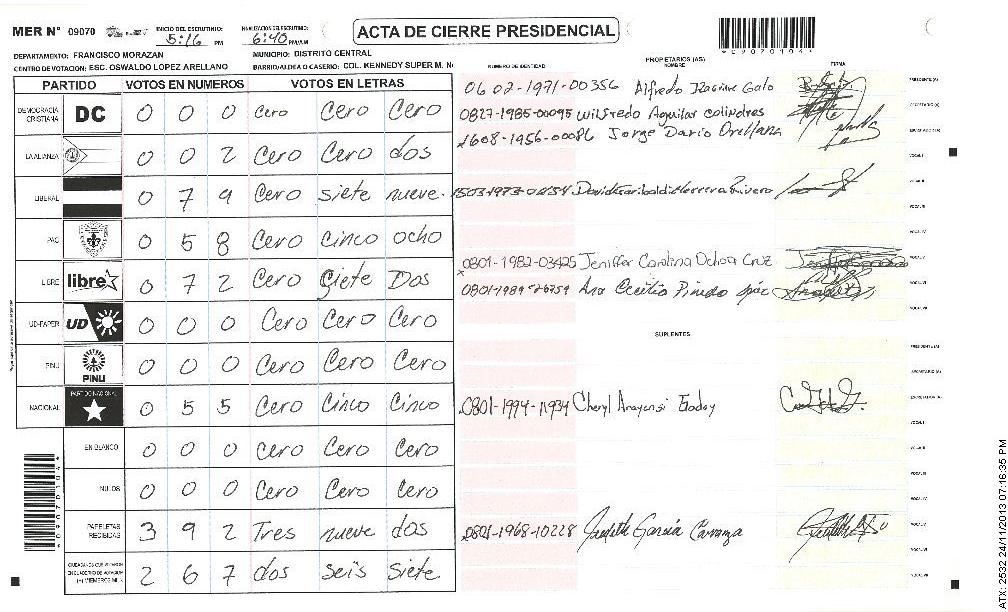 MER N° 09070
INICIO DEL ESCRUTINIO: 5:16 PM
FINALIZACION DEL ESCRUTINIO: 6:40 PM
ACTA DE CIERRE PRESIDENCIAL
09070104
DEPARTAMENTO: FRANCISCO MORAZAN
MUNICIPIO: DISTRITO CENTRAL
CENTRO DE VOTACION: ESC. OSWALDO LOPEZ ARELLANO
BARRIO/ALDEA O CASERIO: COL. KENNEDY SUPER M. N
PARTIDO VOTOS EN NUMEROS VOTOS EN LETRAS
DEMOCRACIA CRISTIANA DC 0 0 0 Cero Cero Cero
LA ALIANZA 0 0 2 Cero Cero dos
LIBERAL 0 7 9 Cero siete nueve
PAC 0 5 8 Cero cinco ocho
LIBRE libre 0 7 2 Cero Siete Dos
UD-FAPER UD 0 0 0 Cero Cero Cero
PINU PINU 0 0 0 Cero Cero Cero
NACIONAL PARTIDO NACIONAL 0 5 5 Cero Cinco Cinco
EN BLANCO 0 0 0 Cero Cero Cero
NULOS 0 0 0 Cero Cero Cero
PAPELETAS RECIBIDAS 3 9 2 Tres nueve dos
2 6 7 dos seis siete
09070104
NUMERO DE IDENTIDAD
PROPIETARIOS (AS)
NOMBRE
FIRMA
0602-1971-00356 Alfredo Galo PRESIDENTE(A)
0827-1985-00095 Wilfredo Aguilar colindres SECRETARIO(A)
1608-1956-00086 Jorge Dario Orellana
0801-1982-03425 Jeniffer Carolina Ochoa Cruz
Ana Cecilia Pinedo
SUPLENTES
PRESIDENTE(A)
SECRETARIO(A)
0801-1994-11934 Cheryl Godoy
0801-1968-10228 Judith García Carranza
ATX: 2532 24/11/2013 07:16:35 PM